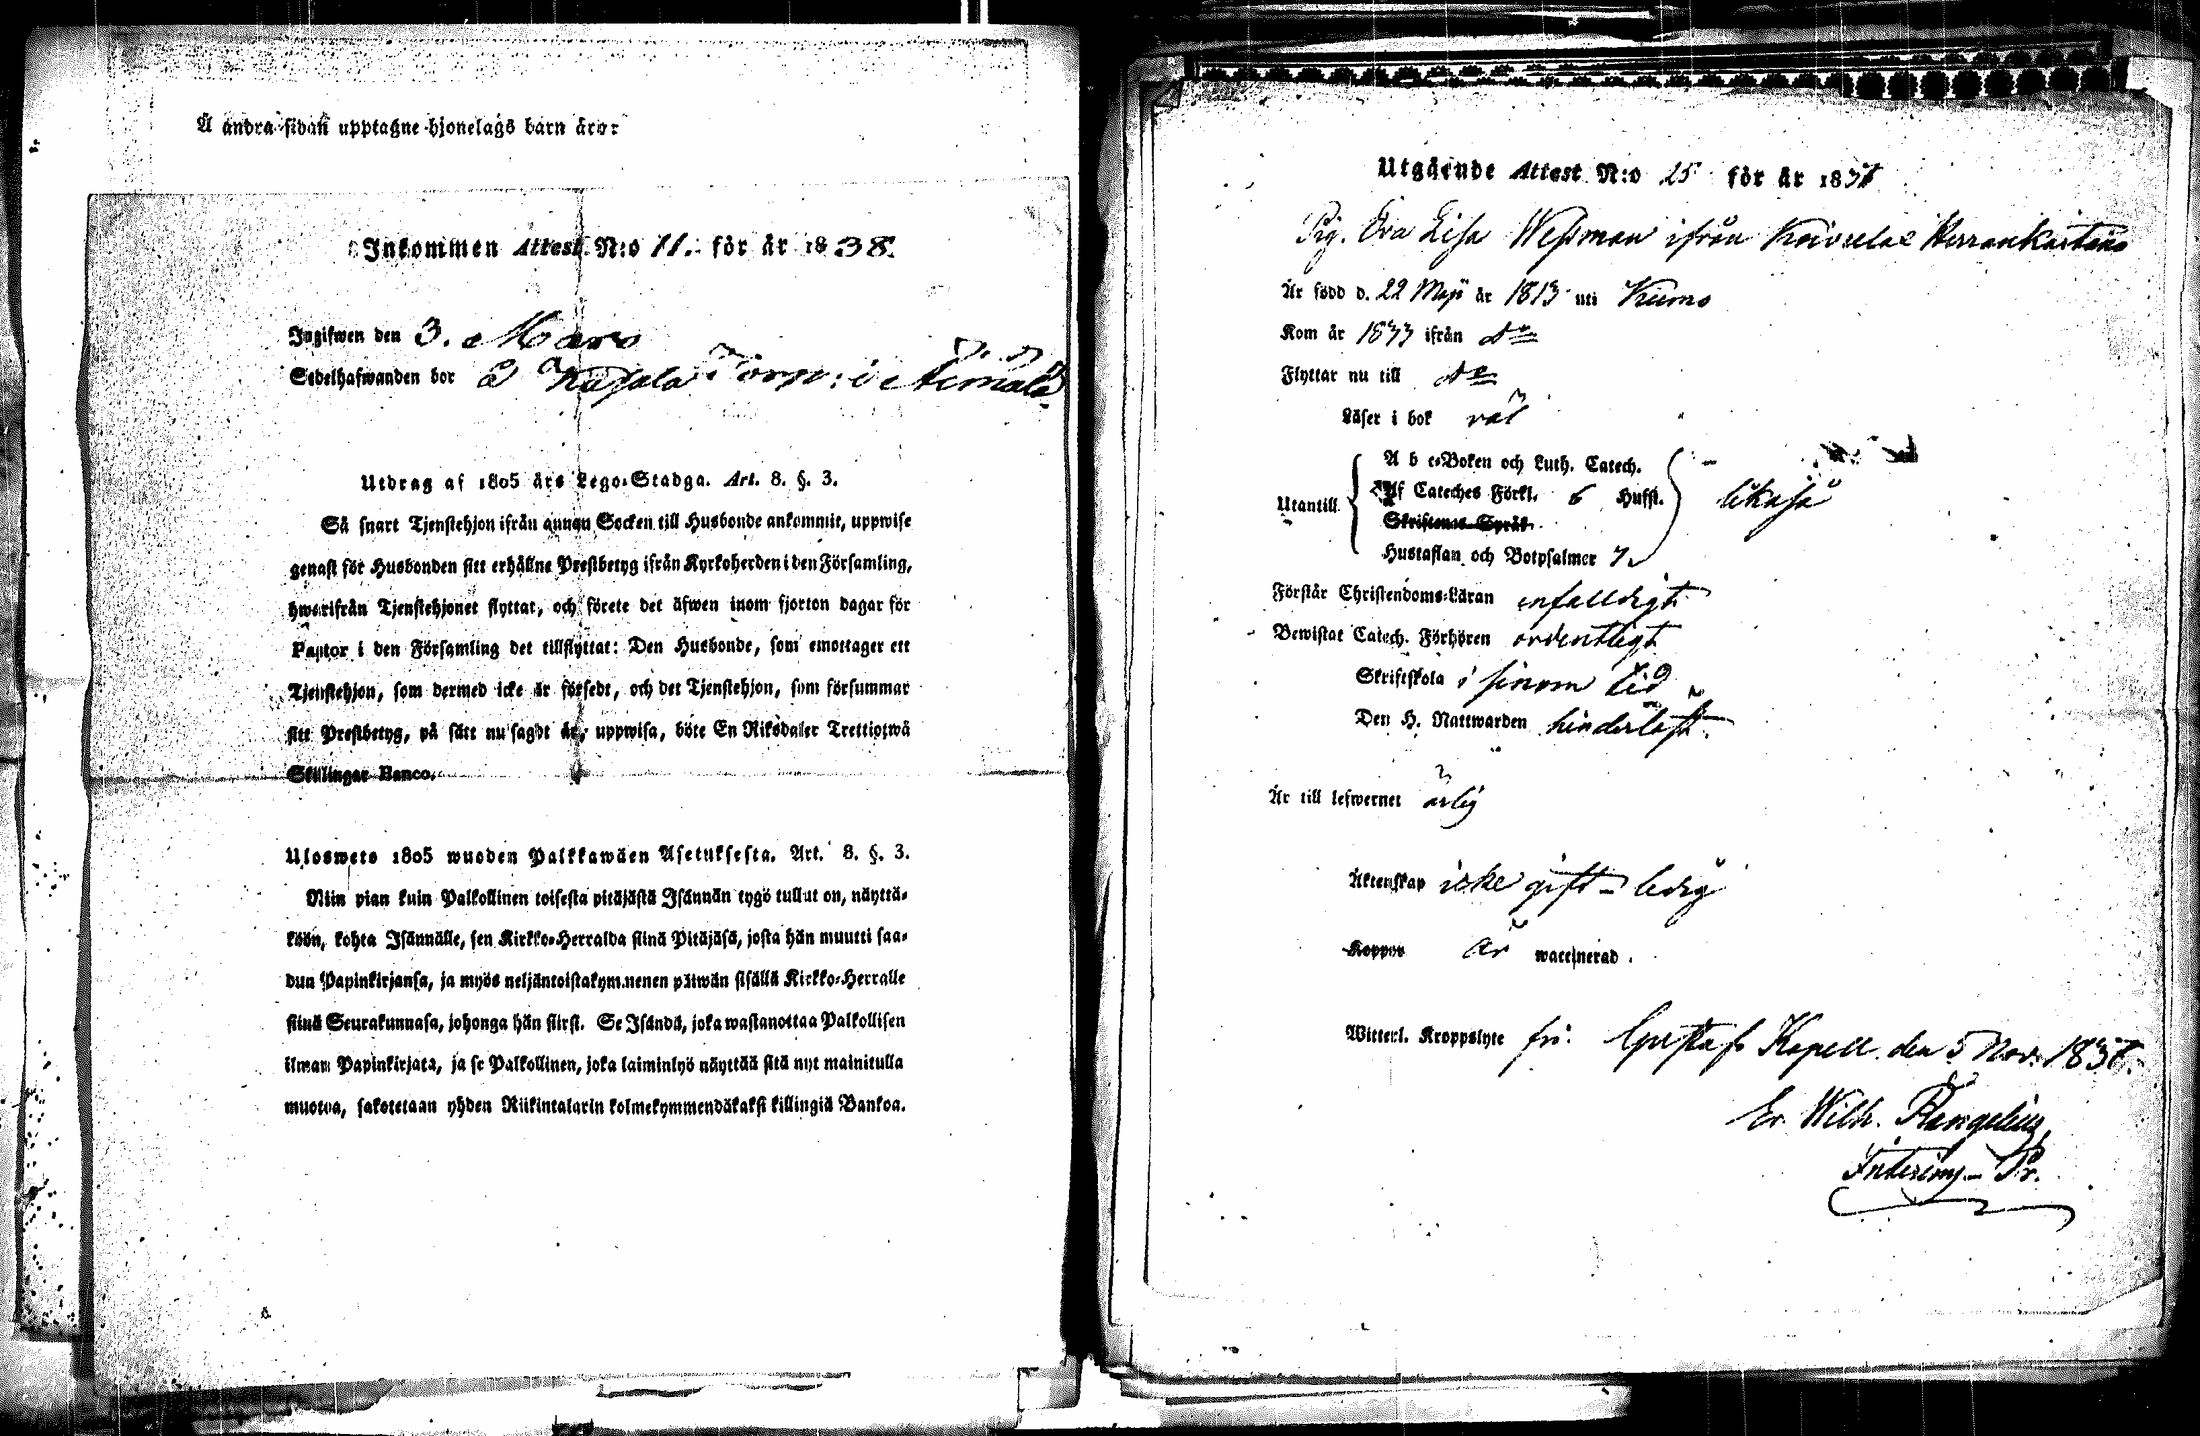 Å andra sidan upptagne hjonelags barn äro:
Inkommen Attest N:o 11. för år 1838.
Ingifwen den 3. Mars
Sedelhafwanden bor å
Utdrag af 1805 års Lego-Stadga. Art. 8. §. 3.
Så snart Tjenstehjon ifrån annan Socken till Husbonde ankommit, uppwise
genast för Husbonden sitt erhållne Prestbetyg ifrån Kyrkoherden i den Församling,
hwarifrån Tjenstehjonet flyttat, och förete det äfwen inom fjorton dagar för
Pastor i den Församling det tillflyttat: Den Husbonde, som emottager ett
Tjenstehjon, som dermed icke är försedt, och det Tjenstehjon, som försummar
sitt Prestbetyg, på sätt nu sagdt är, uppwisa, böte En Riksdaler Trettiotwå
Skillingar Banco.
Ulosweto 1805 wuoden Palkkawäen Asetuksesta. Art. 8. §. 3.
Niin pian kuin Palkollinen toisesta pitäjästä Isännän tygö tullut on, näyttä-
köön, kohta Isännälle, sen Kirkko-Herralda siinä Pitäjäsä, josta hän muutti saa-
dun Papinkirjansa, ja myös neljäntoistakymmenen päiwän sisällä Kirkko-Herralle
siinä Seurakunnasa, johonga hän siirsi. Se Isändä, joka wastanottaa Palkollisen
ilman Papinkirjata, ja se Palkollinen, joka laiminlyö näyttää sitä nyt mainitulla
muotoa, sakotetaan yhden Riikintalarin kolmekymmendäkaksi killingiä Bankoa.
Utgående Attest N:o 25 för år 1837
Pig. Eva Lisa Weßman ifrån
Är född d. 22 Maji år 1813 uti Kumo
Kom år 1833 ifrån
Flyttar nu till
Läser i bok väl
Utantill
A b c-Boken och Luth. Catech.
Af Cateches Förkl. 6 Hufst.
Skriftenes Språk
Hustaflan och Botpsalmer 7.
likaså
Förstår Christendoms-Läran enfalldigt
Bewistat Catech. Förhören ordentligt
Skriftskola i sinom tid
Den H. Nattwarden hinderlöst.
Är till lefwernet ärlig
Äktenskap icke gift - ledig
Koppor är waccinerad.
Witterl. Kroppslyte fri. Gustafs Kapell den 5 Nov. 1837.
Er. Wilh.
Interims-Pr.